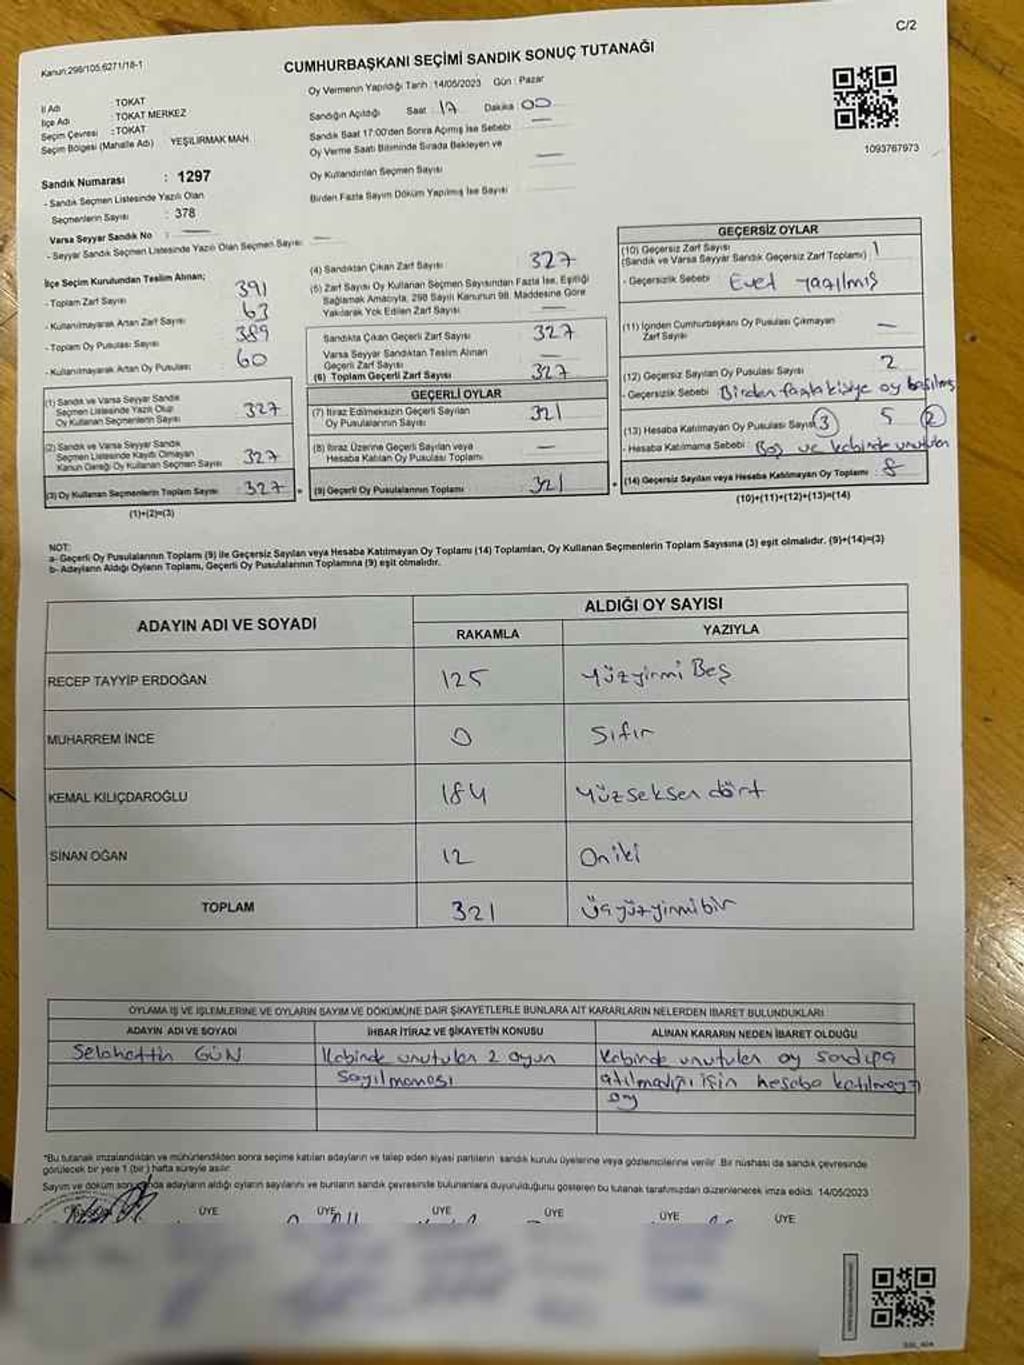 C/2
Kanun:298/105,6271/18-1
CUMHURBAŞKANI SEÇİMİ SANDIK SONUÇ TUTANAĞI
İl Adı : TOKAT
İlçe Adı : TOKAT MERKEZ
Seçim Çevresi : TOKAT
Seçim Bölgesi (Mahalle Adı) YEŞİLIRMAK MAH.
Sandık Numarası : 1297
- Sandık Seçmen Listesinde Yazılı Olan
Seçmenlerin Sayısı : 378
Varsa Seyyar Sandık No : —
- Seyyar Sandık Seçmen Listesinde Yazılı Olan Seçmen Sayısı : —
Oy Vermenin Yapıldığı Tarih : 14/05/2023 Gün : Pazar
Sandığın Açıldığı Saat : 17 Dakika : 00
Sandık Saat 17:00'den Sonra Açılmış İse Sebebi : —
Oy Verme Saati Bitiminde Sırada Bekleyen ve
Oy Kullandırılan Seçmen Sayısı —
Birden Fazla Sayım Döküm Yapılmış İse Sayısı :
1093767973
İlçe Seçim Kurulundan Teslim Alınan;
- Toplam Zarf Sayısı 391
- Kullanılmayarak Artan Zarf Sayısı : 63
- Toplam Oy Pusulası Sayısı 389
- Kullanılmayarak Artan Oy Pusulası : 60
(1) Sandık ve Varsa Seyyar Sandık
Seçmen Listesinde Yazılı Olup
Oy Kullanan Seçmenlerin Sayısı : 327
(2) Sandık ve Varsa Seyyar Sandık
Seçmen Listesinde Kaydı Olmayan
Kanun Gereği Oy Kullanan Seçmen Sayısı : 327
(3) Oy Kullanan Seçmenlerin Toplam Sayısı : 327
(1)+(2)=(3)
(4) Sandıktan Çıkan Zarf Sayısı : 327
(5) Zarf Sayısı Oy Kullanan Seçmen Sayısından Fazla İse, Eşitliği
Sağlamak Amacıyla, 298 Sayılı Kanunun 98. Maddesine Göre
Yakılarak Yok Edilen Zarf Sayısı : —
Sandıkta Çıkan Geçerli Zarf Sayısı : 327
Varsa Seyyar Sandıktan Teslim Alınan
Geçerli Zarf Sayısı : —
(6) Toplam Geçerli Zarf Sayısı : 327
GEÇERLİ OYLAR
(7) İtiraz Edilmeksizin Geçerli Sayılan
Oy Pusulasının Sayısı : 321
(8) İtiraz Üzerine Geçerli Sayılan veya
Hesaba Katılan Oy Pusulası Toplamı : —
(9) Geçerli Oy Pusulalarının Toplamı : 321
GEÇERSİZ OYLAR
(10) Geçersiz Zarf Sayısı
(Sandık ve Varsa Seyyar Sandık Geçersiz Zarf Toplamı) : 1
- Geçersizlik Sebebi : Evet yazılmış
(11) İçinden Cumhurbaşkanı Oy Pusulası Çıkmayan
Zarf Sayısı : —
(12) Geçersiz Sayılan Oy Pusulası Sayısı : 2
- Geçersizlik Sebebi : Birden fazla kişiye oy basılmış
(13) Hesaba Katılmayan Oy Pusulası Sayısı 3 5 2
- Hesaba Katılmama Sebebi : Boş ve kabinde unutulan
(14) Geçersiz Sayılan veya Hesaba Katılmayan Oy Toplamı : 8
(10)+(11)+(12)+(13)=(14)
NOT:
a- Geçerli Oy Pusulalarının Toplamı (9) ile Geçersiz Sayılan veya Hesaba Katılmayan Oy Toplamı (14) Toplamları, Oy Kullanan Seçmenlerin Toplam Sayısına (3) eşit olmalıdır. (9)+(14)=(3)
b- Adayların Aldığı Oyların Toplamı, Geçerli Oy Pusulalarının Toplamına (9) eşit olmalıdır.
ADAYIN ADI VE SOYADI ALDIĞI OY SAYISI
RAKAMLA YAZIYLA
RECEP TAYYİP ERDOĞAN 125 Yüzyirmi Beş
MUHARREM İNCE 0 Sıfır
KEMAL KILIÇDAROĞLU 184 Yüzseksen dört
SİNAN OĞAN 12 Oniki
TOPLAM 321 Üçyüzyirmibir
OYLAMA İŞ VE İŞLEMLERİNE VE OYLARIN SAYIM VE DÖKÜMÜNE DAİR ŞİKAYETLERLE BUNLARA AİT KARARLARIN NELERDEN İBARET BULUNDUKLARI
ADAYIN ADI VE SOYADI İHBAR İTİRAZ VE ŞİKAYETİN KONUSU ALINAN KARARIN NEDEN İBARET OLDUĞU
Selahattin GÜN Kabinde unutulan 2 oyun Kabinde unutulan oy sandığa
sayılmaması atılmadığı için hesaba katılmayan
oy
*Bu tutanak imzalandıktan ve mühürlendikten sonra seçime katılan adayların ve talep eden siyasi partilerin sandık kurulu üyelerine veya gözlemcilerine verilir. Bir nüshası da sandık çevresinde
görülecek bir yere 1 (bir) hafta süreyle asılır.
Sayım ve döküm sonunda adayların aldığı oyların sayılarını ve bunların sandık çevresinde bulunanlara duyurulduğunu gösteren bu tutanak tarafımızdan düzenlenerek imza edildi. 14/05/2023
BAŞKAN ÜYE ÜYE ÜYE ÜYE ÜYE ÜYE